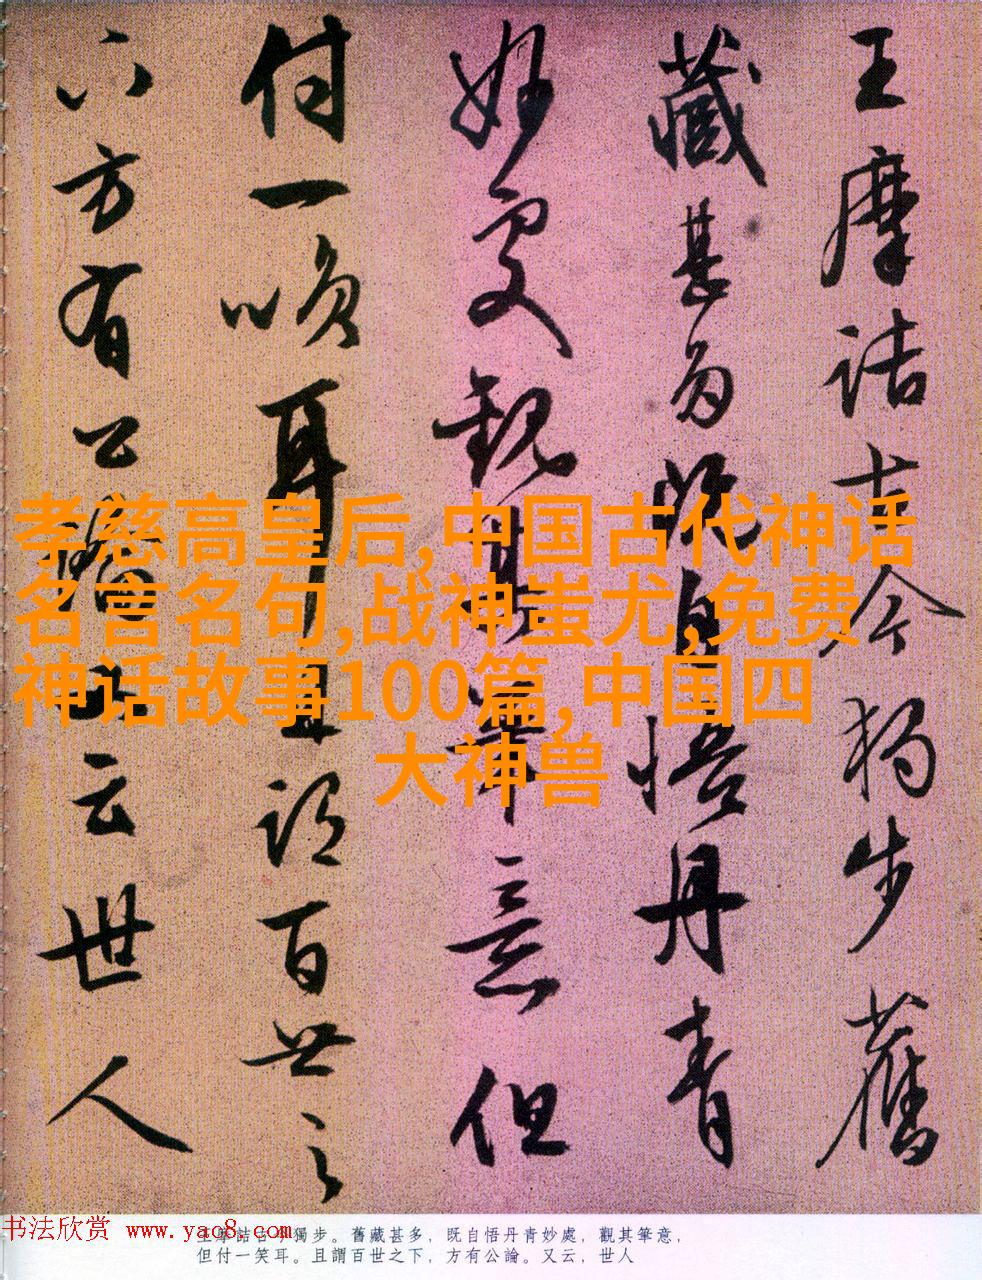 王摩詰古今獨步舊
藏甚多既自悟丹青
妙處觀其筆意但
付一笑耳且謂百世之
下方有公論又云世人
孝慈高皇后,中国古代神话
名言名句,战神蚩尤,免费
神话故事100篇,中国四
大神兽
书法欣赏 www.yac8.com
王摩詰古今獨步。舊藏甚多，既自悟丹青妙處，觀其筆意，
但付一笑耳。且謂百世之下，方有公論。又云，世人